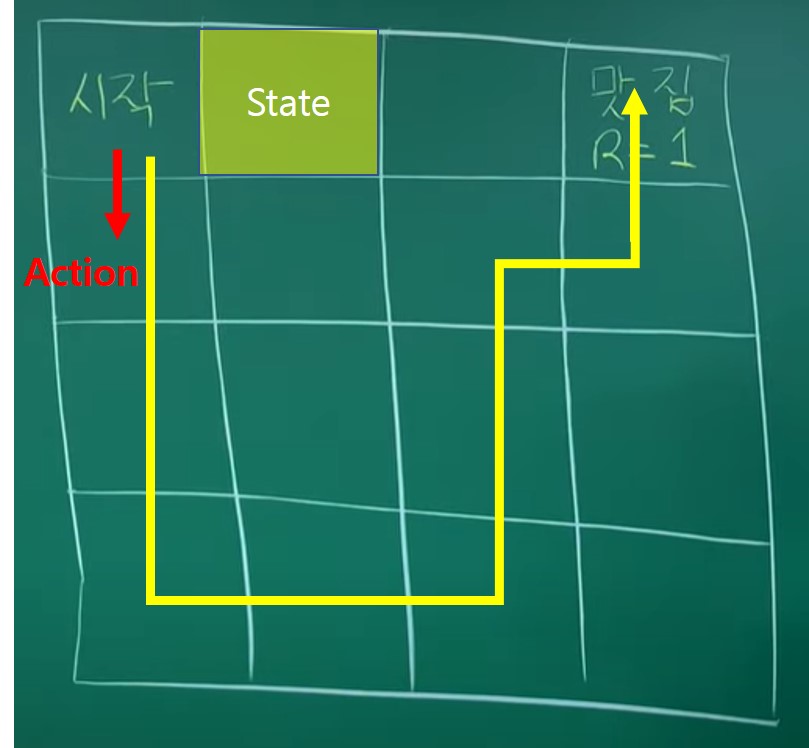 시작
State
맛집
R=1
Action